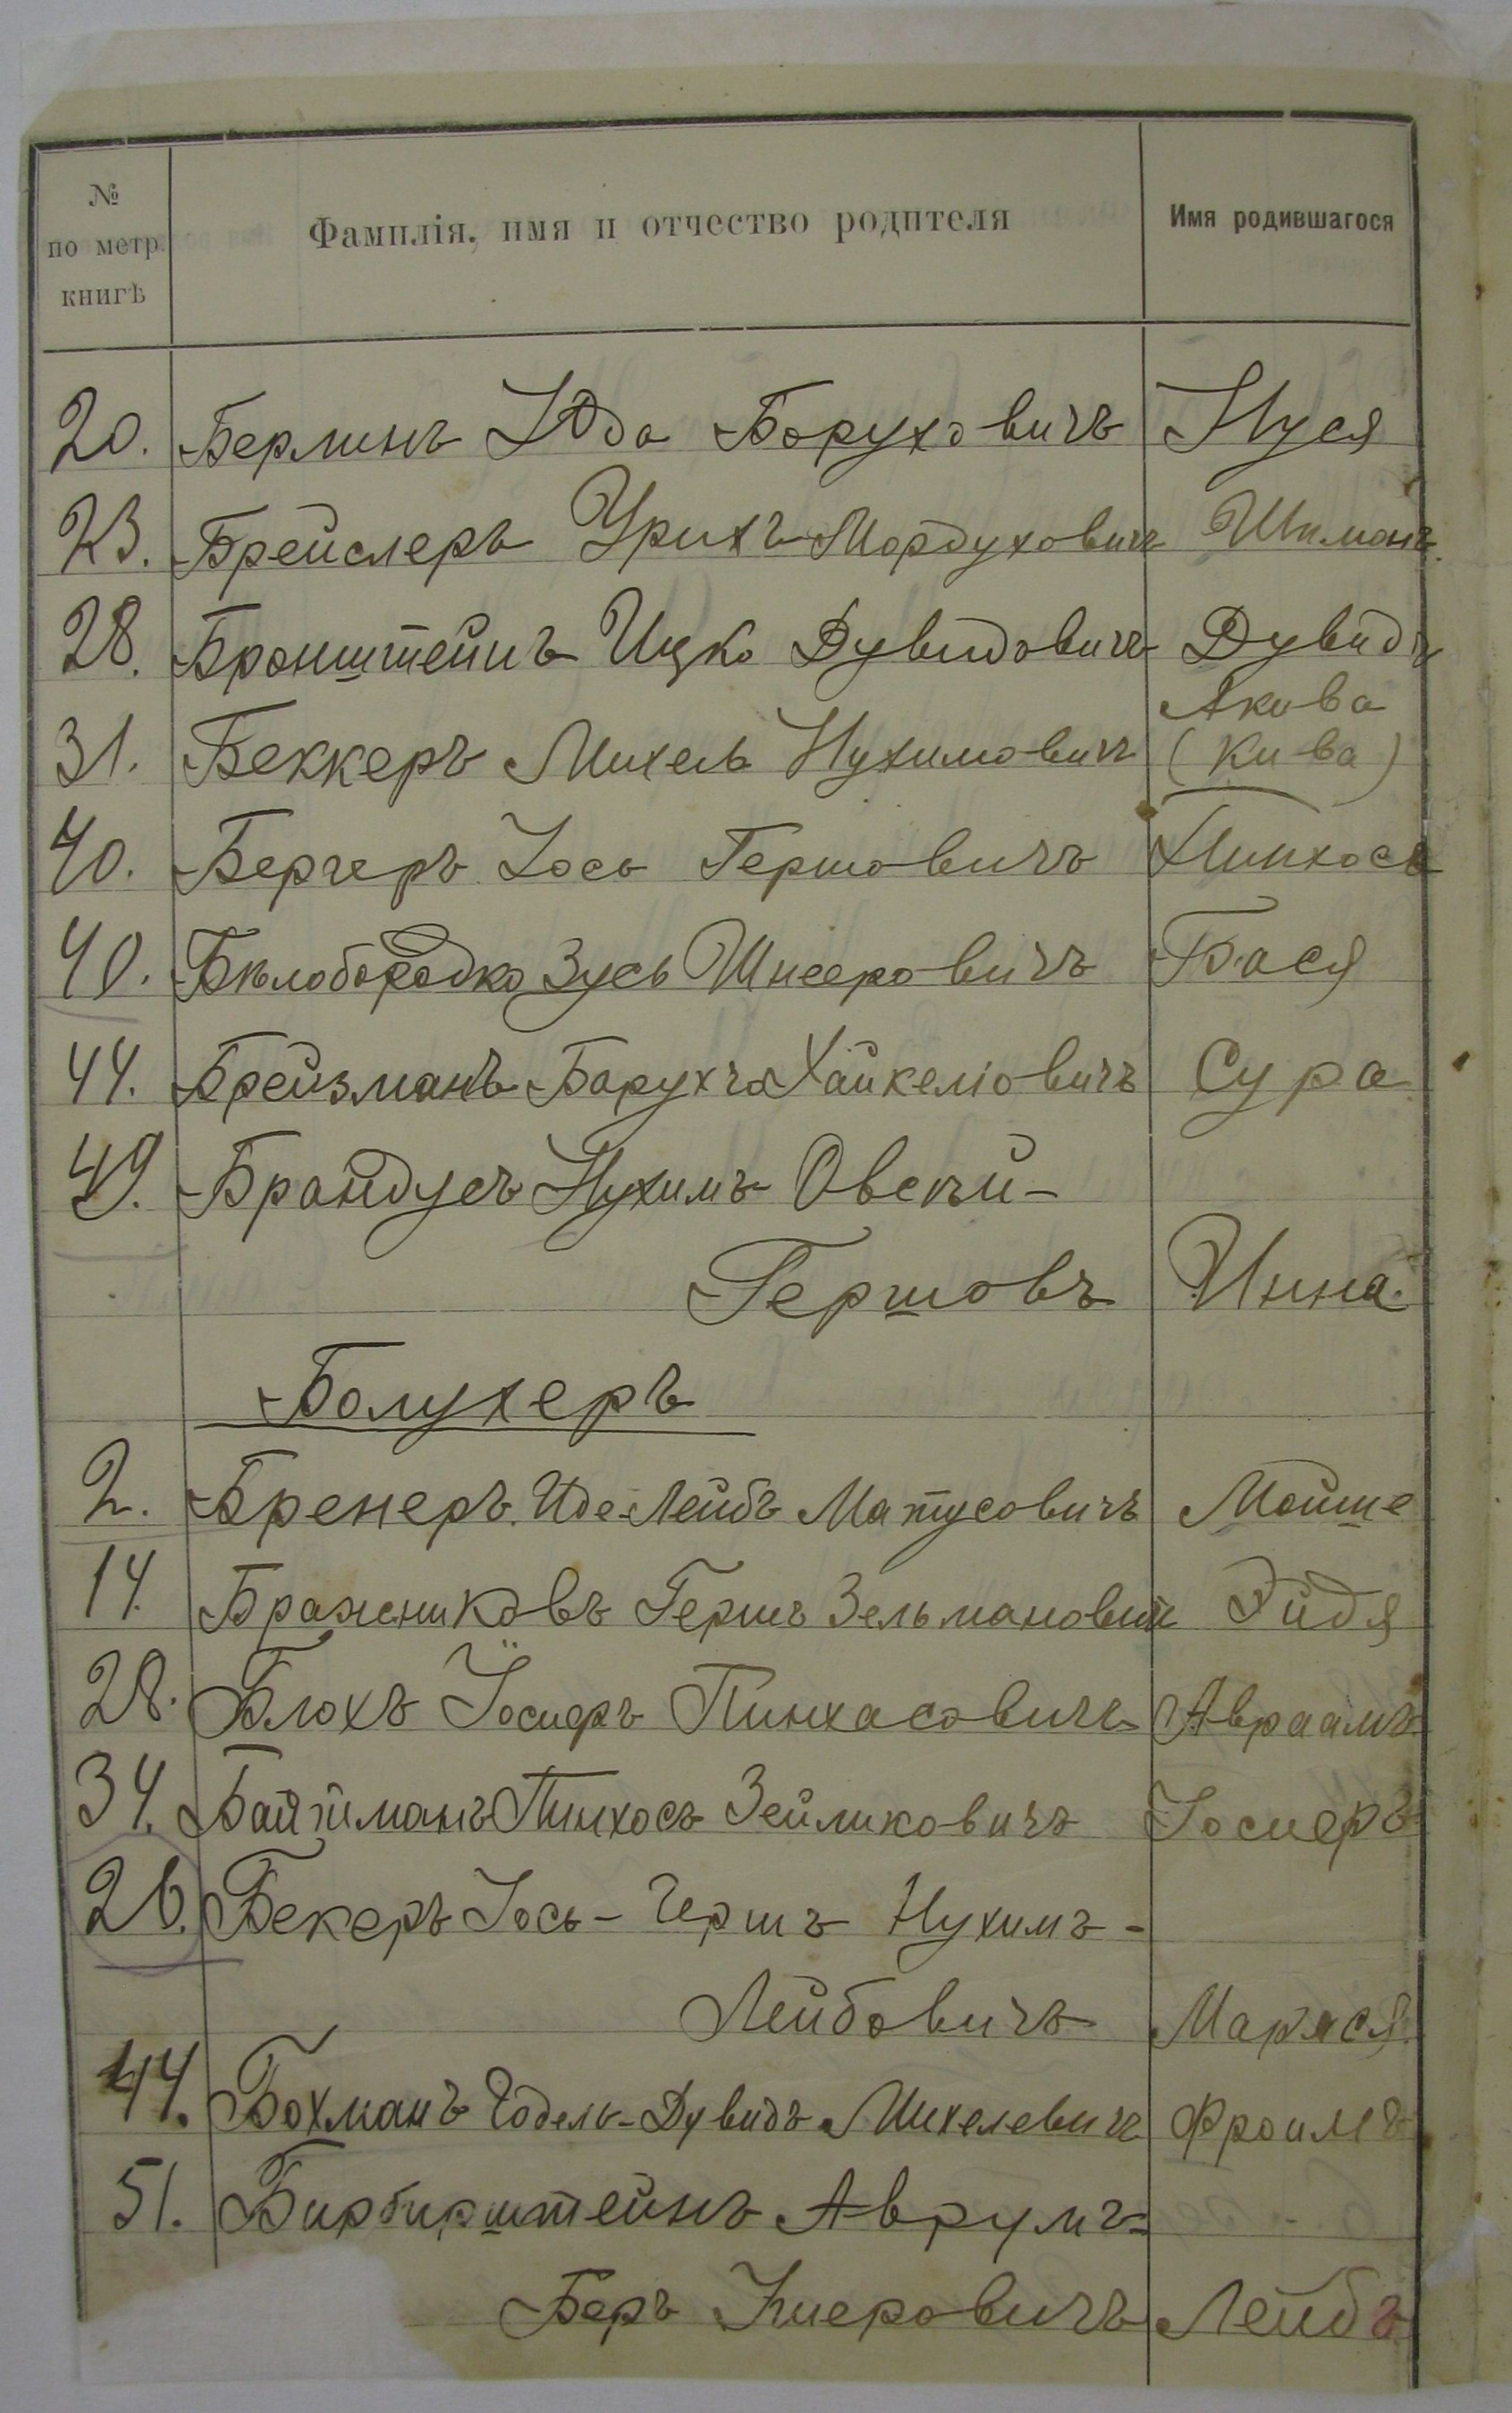 №
по метр.
книгѣ
Фамилія, имя и отчество родителя
Имя родившагося
20. Берлинъ Юда Боруховичъ Нуся
23. Брейслеръ Урихъ Мордуховичъ Шимонъ
28. Бронштейнъ Ицко Дувидовичъ Дувидъ
Акива
31. Беккеръ Михель Нухимовичъ (Кива)
40. Бергеръ Іось Гершовичъ Пинхосъ
40. Бѣлобородко Зусь Шнееровичъ Бася
44. Брейзманъ Борухъ Хайкеліовичъ Сура
49. Брандусъ Нухимъ Овсѣй-
Гершовъ Инна
Болухеръ
2. Бренеръ Иде-Лейбъ Матусовичъ Мойше
14. Бражниковъ Гершъ Зельмановичъ Эйдя
28. Блохъ Іосифъ Пинхасовичъ Авраамъ
34. Пинхосъ Зейликовичъ Іосифъ
26. Бекеръ Іось-Гершъ Нухимъ-
Лейбовичъ Маряся
44. Бохманъ Годель-Дувидъ Михелевичъ Фроимъ
51. Бирбирштейнъ Аврумъ-
Беръ Лейбъ